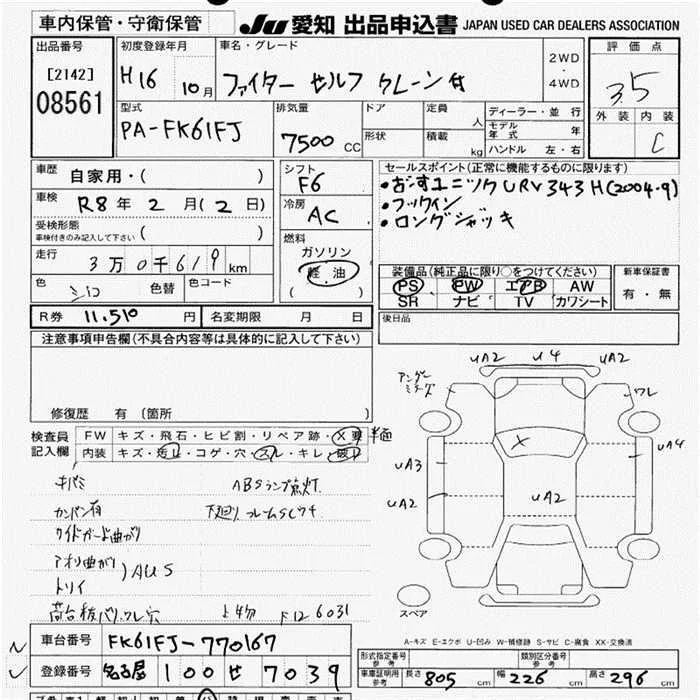 車内保管・守衛保管
JU 愛知 出品申込書 JAPAN USED CAR DEALERS ASSOCIATION
出品番号
[2142]
08561
初度登録年月
H16 10月
車名・グレード
ファイター セルフ クレーン付
2WD
・
4WD
評価点
3.5
外装 内装
C
型式
PA-FK61FJ
排気量
7500 CC
ドア
形状
定員 人
積載 kg
ディーラー・並行
モデル年式 年
ハンドル 左・右
車歴
自家用・( )
車検
R8年 2月(2日)
受検形態
車検付きのみ記入して下さい ( )
走行
3万0千619km
色
シロ
色替
色コード
シフト
F6
冷房
AC
燃料
ガソリン
軽油
( )
セールスポイント(正常に機能するものに限ります)
・古河ユニック URV343H(2004.9)
・フックイン
・ロングジャッキ
装備品(純正品に限り○をつけてください)
PS PW エアB AW
SR ナビ TV カワシート
新車保証書
有・無
後日品
R券 11,510円
名変期限 月 日
注意事項申告欄(不具合内容等は具体的に記入して下さい)
修復歴 有 (箇所 )
検査員記入欄
FW キズ・飛石・ヒビ割・リペア跡・X要 半面
内装 キズ・汚れ・コゲ・穴・スレ・キレ・破れ
キバミ
ABSランプ点灯
カンバン有
下廻り フレームSCサキ
サイドガード曲がり
アオリ曲がり
トリイ
)AUS
荷台板バリ、ワレ、穴
F12 6031
車台番号 FK61FJ-770167
登録番号 名古屋 100 せ 7039
UA2 U4 UA2
アンダーミラーキズ
ワレ
UA3
UA4
UA2
UA2
X
スペア
A-キズ E-エクボ U-凹み W-補修跡 S-サビ C-腐食 XX-交換済
型式指定番号 参考
類別区分番号 参考
車庫証明用 参考
長さ 805 cm
幅 226 cm
高さ 296 cm